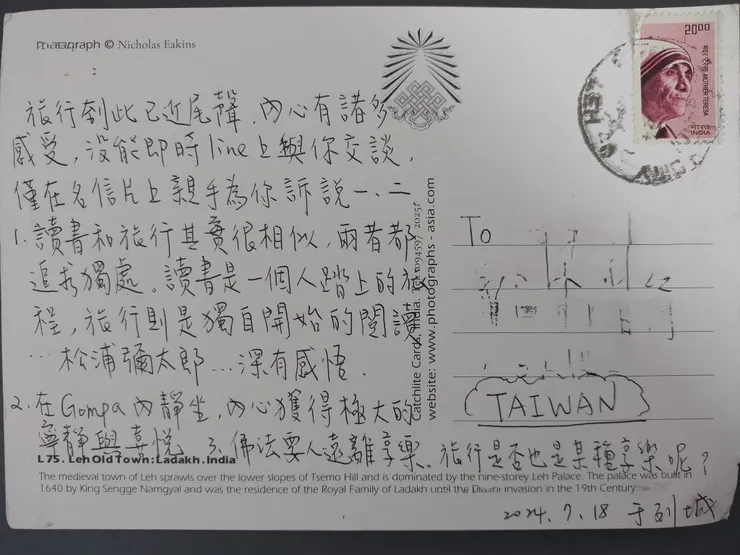 photograph © Nicholas Eakins
20.00
MOTHER TERESA
INDIA
旅行到此已近尾聲，內心有諸多
感受，沒能即時line上與你交談，
僅在名信片上親手為你訴說一、二
1. 讀書和旅行其實很相似，兩者都
追求獨處。讀書是一個人踏上的旅
程，旅行則是獨自開始的閱讀
…松浦彌太郎…深有感悟．
2. 在Gompa內靜坐，內心獲得極大的
寧靜與喜悅 3. 佛法要人遠離享樂。旅行是否也是某種享樂呢？
Catchlite Cards, India.
website: www.photographs-asia.com
To
TAIWAN
L75. Leh Old Town: Ladakh. India
The medieval town of Leh sprawls over the lower slopes of Tsemo Hill and is dominated by the nine-storey Leh Palace. The palace was built in
1640 by King Sengge Namgyal and was the residence of the Royal Family of Ladakh until the invasion in the 19th Century.
2024.7.18 于列城